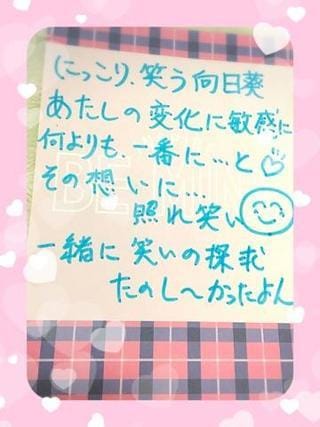 にっこり、笑う向日葵
あたしの変化に敏感に
何よりも、一番に…と♡
その想いに…
照れ笑い
一緒に笑いの探求
たのし〜かったよん